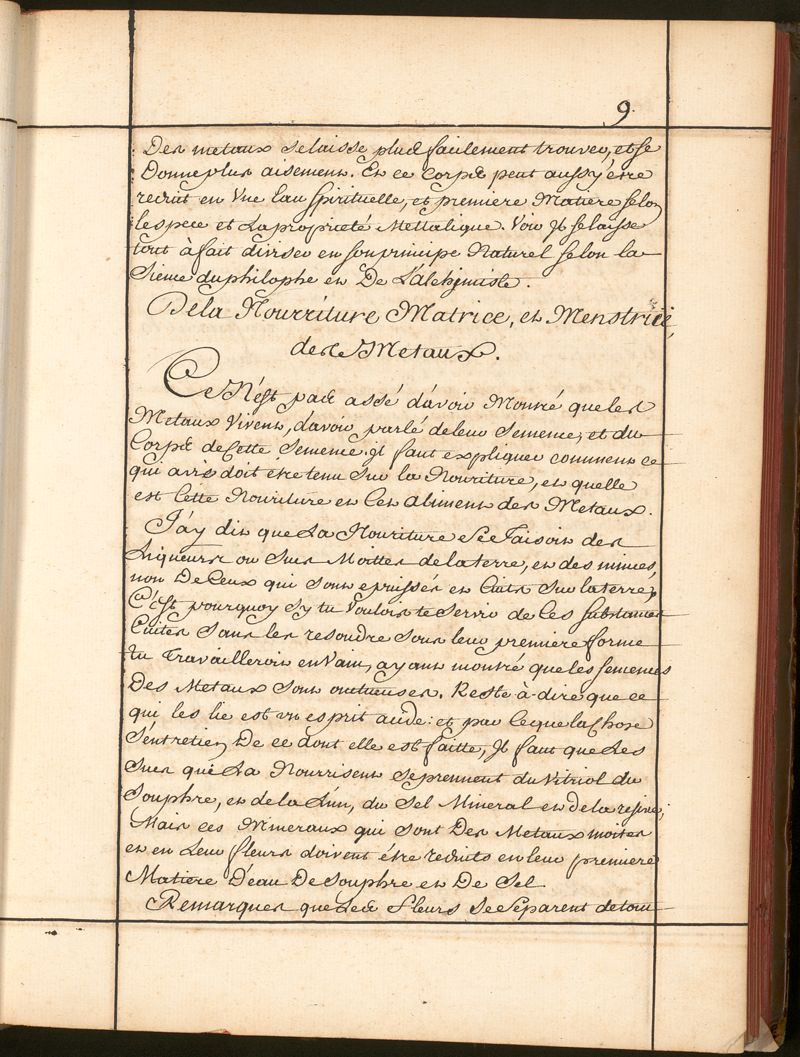 9.
Des metaux se laisse plus facilement trouver, et se
Donne plus aisement. Et ce Corps peut aussy être
reduit en Vne Eau Spirituelle, et premiere Matiere selon
lespece et La proprieté Mettalique. Voir Jl se laisse
tout à fait diviser en son principe Naturel selon la
Sience du philophe et De L'alchymiste.
De la Nourriture Matrice, et Menstrüe,
des Metaux.
Ce N'est pas assé d'avoir Montré que les
Metaux Vivent, d'avoir parlé de leur Semence, et du
Corps de Cette Semence. jl faut expliquer comment ce
qui avis doit être tenu Sur la Nouriture, et quelle
est Cette Nouriture et Ces alimens des Metaux.
J'ay dit que La Nouriture Se Faisoit des
Liqueurs ou Sucs Moittes de la terre, et des mines,
non De Ceux qui sont epuissés et Cuits Sur la terre,
C'est pourquoy Sy tu Voulois te Servir de Ces Substances
Cuites Sans les resoudre Sous leur premiere forme
tu Travaillerois en Vain, ayant montré que les semences
Des Metaux Sont onctueuses. Reste à dire que ce
qui les lie est vn esprit acide: et par Ceque la Chose
S'entretien De ce dont elle est faitte, Jl faut que Les
Sucs qui La Nourrisent se prennent du Vitriol du
Souphre, et de la Lun, du Sel Mineral et de la resine;
Mais ces Mineraux qui sont Des Metaux moites
et en Leur fleurs doivent être reduits en leur premiere
Matiere D'eau De Souphre et De Sel
Remarques que Les fleurs Se Separent de tout